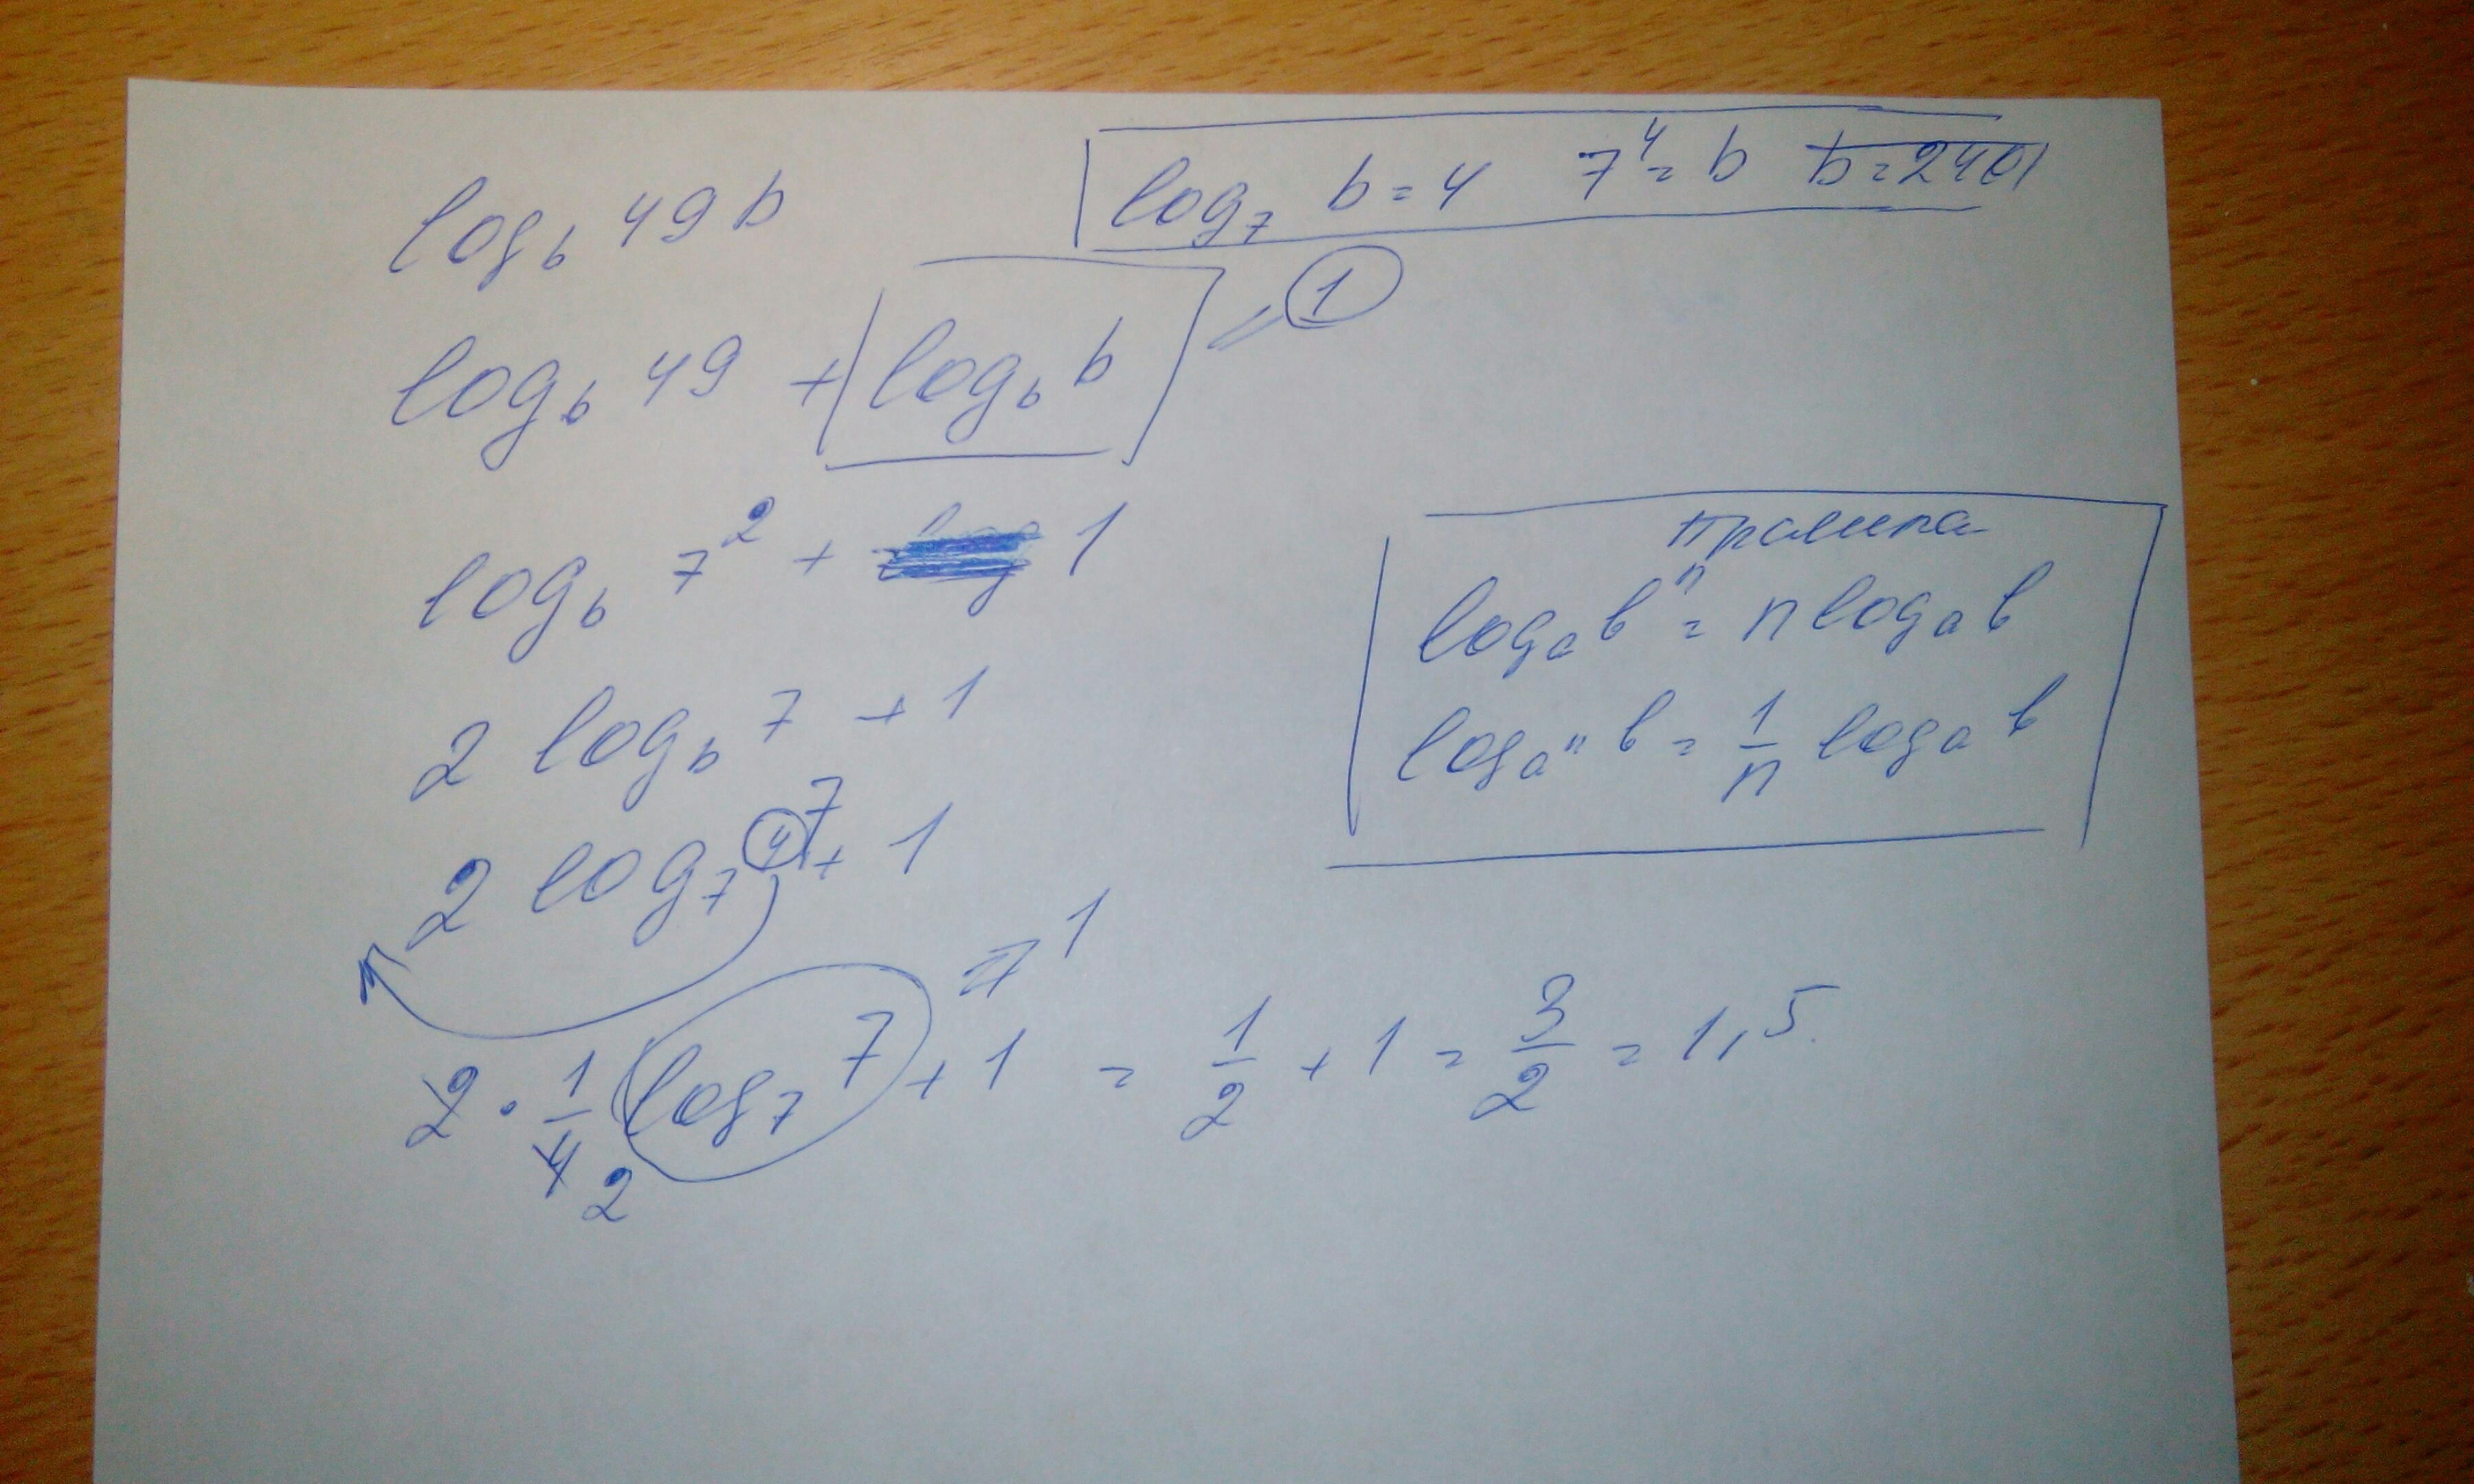 log₇ b = 4 7⁴ = b b = 2401
log_b 49 b
log_b 49 + log_b b = 1
log_b 7² + 1
2 log_b 7 + 1
2 log_7⁴ 7 + 1
2 · 1/4 log₇ 7 + 1 = 1/2 + 1 = 3/2 = 1,5
= 1
2
log_a bⁿ = n log_a b
log_aⁿ b = 1/n log_a b